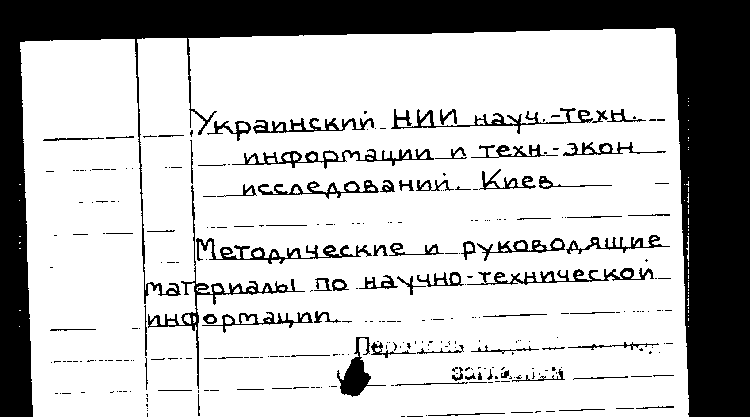 Украинский НИИ науч.-техн.
информации и техн.-экон
исследований. Киев.
Методические и руководящие
материалы по научно-технической
информации.